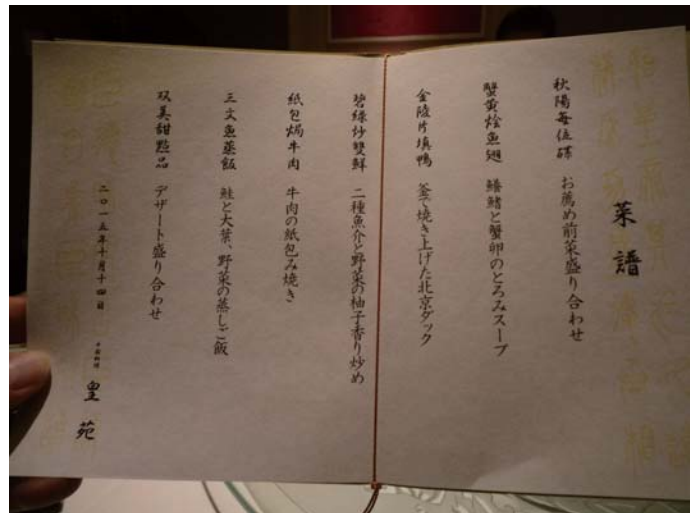 菜譜
秋陽每位碟 お薦め前菜盛り合わせ
蟹黄燴魚翅 鱶鰭と蟹卵のとろみスープ
金陵片填鴨 釜で焼き上げた北京ダック
碧綠炒雙鮮 二種魚介と野菜の柚子香り炒め
紙包焗牛肉 牛肉の紙包み焼き
三文魚蒸飯 鮭と大葉、野菜の蒸しご飯
双美甜點品 デザート盛り合わせ
二〇一五年十月十四日
中国料理 皇苑